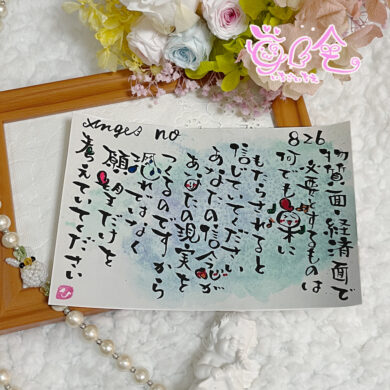 angel no 826
物質面・経済面で
必要とするものは
何でも常に
もたらされると
信じてください
あなたの信念が
あなたの現実を
つくるのですから
恐れではなく
願望だけを
考えていてください